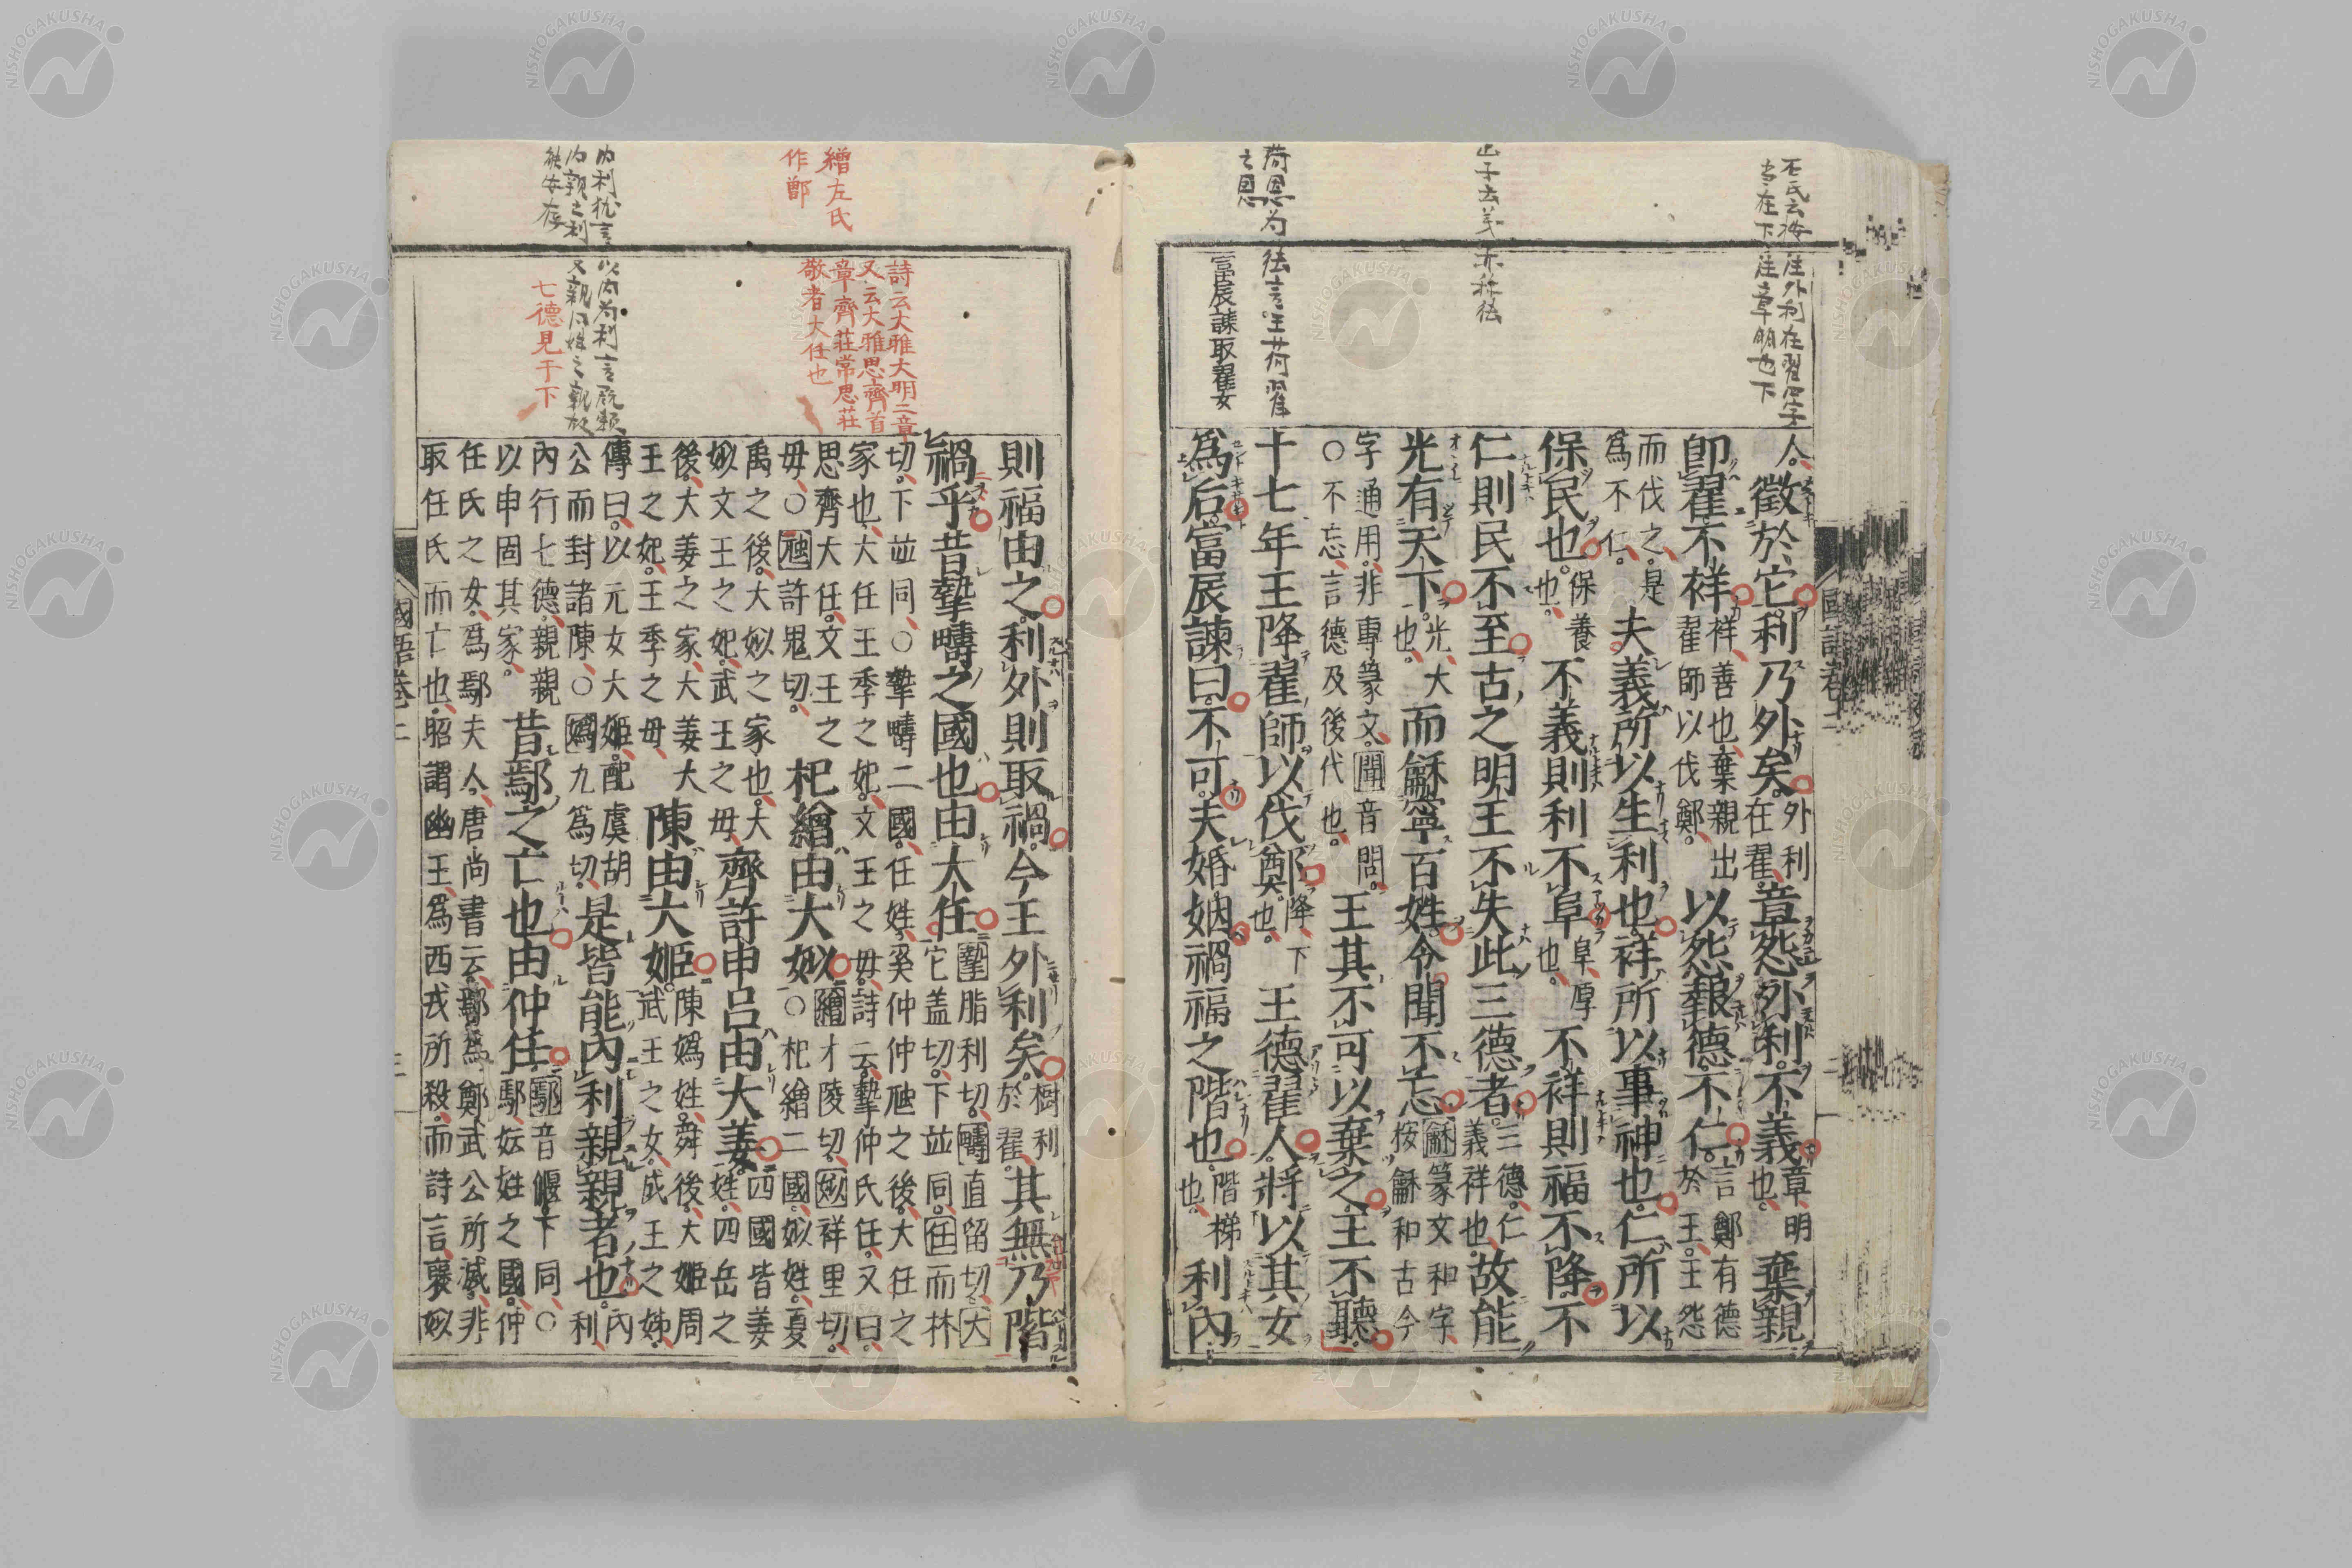 國語卷二
人。徵於它。利乃外矣。外利在翟。章怨外利。不義。章明也。棄親
卽翟。不祥。祥善也。棄親出翟師以伐鄭。以怨報德。不仁。言鄭有德於王。王怨
而伐之。是爲不仁。夫義所以生利也。祥所以事神也。仁所以
保民也。保養也。不義則利不阜。阜厚也。不祥則福不降。不
仁則民不至。古之明王不失此三德者。三德。仁義祥也。故能
光有天下。光大也。而龢寧百姓。令聞不忘。龢篆文和字。按龢和古今
字通用。非專篆文。聞音問。○不忘。言德及後代也。王其不可以棄之。王不聽。
十七年王降翟師以伐鄭。降下也。王德翟人。將以其女
爲后。富辰諫曰。不可。夫婚姻禍福之階也。階梯也。利內
富辰諫取翟女
則福由之。利外則取禍。今王外利矣。樹利於翟。其無乃階
禍乎。昔摯疇之國也。由大任。摯脂利切。疇直留切。大它盖切。下並同。任而林
切。下並同。○摯疇二國。任姓。奚仲仲虺之後。大任之家也。大任王季之妃。文王之母。詩云。摯仲氏任。又曰。
思齊大任。文王之母。○虺許鬼切。杞繒由大姒。繒才陵切。姒祥里切。○杞繒二國。姒姓。夏
禹之後。大姒之家也。大姒文王之妃。武王之母。齊許申呂由大姜。四國皆姜姓。四岳之
後。大姜之家。大姜大王之妃。王季之母。陳由大姬。陳嬀姓。舜後。大姬周武王之女。成王之姊。
傳曰。以元女大姬。配虞胡公而封諸陳。○嬀九爲切。是皆能內利親親者也。內利。
內行七德。親親以申固其家。昔鄢之亡也由仲任。鄢音偃。下同。○鄢妘姓之國。仲
任氏之女。爲鄢夫人。唐尚書云。鄢爲鄭武公所滅。非取任氏而亡也。昭謂幽王爲西戎所殺。而詩言褒姒
繒左氏
作鄫
詩云大雅大明二章
又云大雅思齊首
章齊莊常思莊
敬者大任也
七德見于下
國語卷二